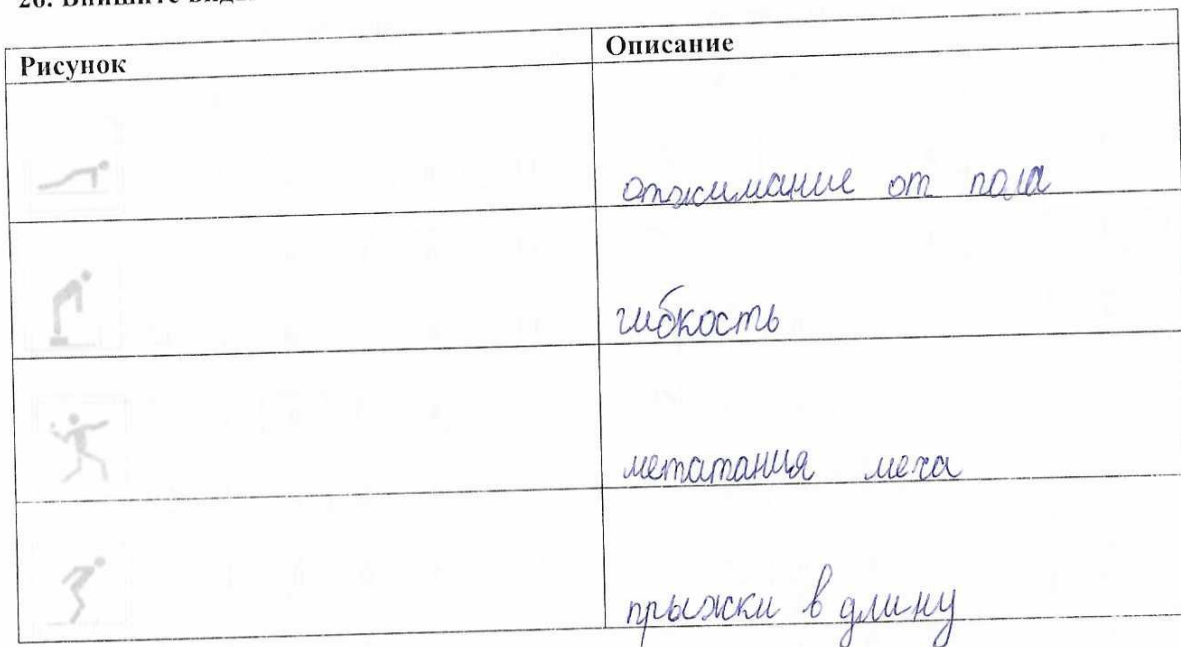 26. Впишите виды
Рисунок Описание
отжимание от пола
гибкость
метатания меча
прыжки в длину